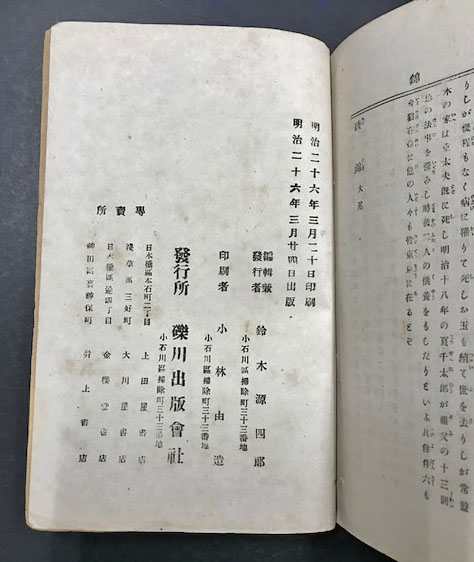 錦
りしが程もな病に罹りて死しか玉も續て世を去りしが常盤
木の家は重太夫既に死し明治十八年の夏千太郎が養父の十三囘
の法事を營みし時故二人の供養をもしたりといふ其餘件六も
他の人々も皆東京に在るとぞ
錦 大尾
明治二十六年三月二十日印刷
明治二十六年三月廿四日出版
編輯兼發行者 鈴木源四郎
小石川區掃除町三十三番地
印刷者 小林由造
小石川區掃除町三十三番地
發行所 礫川出版會社
小石川區掃除町三十三番地
專賣所
日本橋區本石町二丁目 上田屋書店
淺草區三好町 大川屋書店
日本橋區通四丁目 金櫻堂書店
神田區裏神保町 井上書店